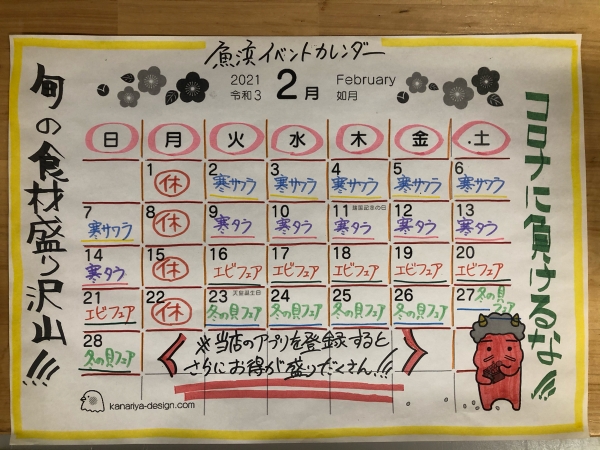 魚浜イベントカレンダー
2021
令和3
2月
February
如月
旬の食材盛り沢山!!!
コロナに負けるな!!!
日 月 火 水 木 金 土
1 2 3 4 5 6
休 寒サワラ 寒サワラ 寒サワラ 寒サワラ 寒サワラ
建国記念の日
7 8 9 10 11 12 13
寒サワラ 休 寒タラ 寒タラ 寒タラ 寒タラ 寒タラ
14 15 16 17 18 19 20
寒タラ 休 エビフェア エビフェア エビフェア エビフェア エビフェア
天皇誕生日
21 22 23 24 25 26 27
エビフェア 休 冬の貝フェア 冬の貝フェア 冬の貝フェア 冬の貝フェア 冬の貝フェア
28
冬の貝フェア
※当店のアプリを登録すると
さらにお得が盛りだくさん!!!
kanariya-design.com